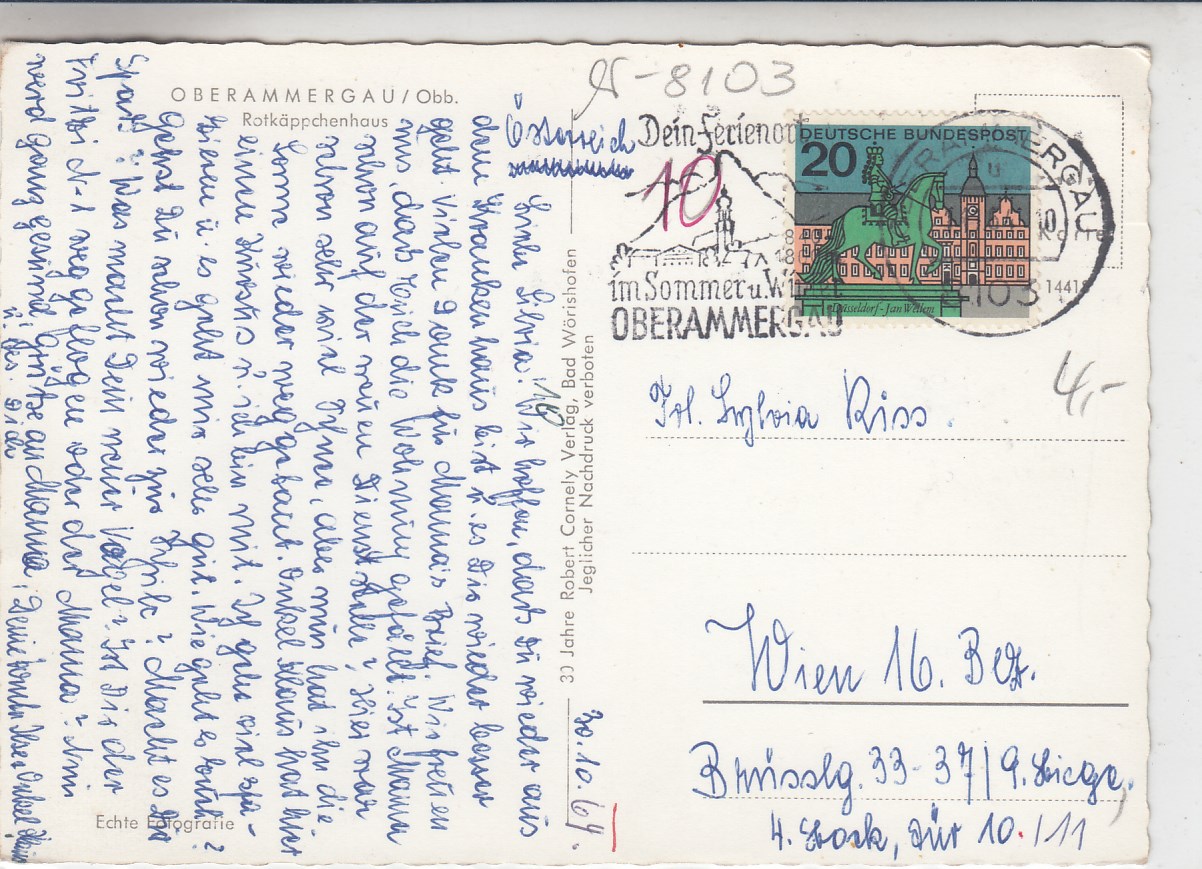 OBERAMMERGAU/Obb.
Rotkäppchenhaus
Österreich
Liebe Silvia! Wir hoffen, dass Du wieder aus
dem Krankenhaus bist u. es Dir wieder besser
geht. Vielen Dank für Mamas Brief. Wir freuen
uns, dass Euch die Wohnung gefällt. Ist Mama
schon auf der neuen Dienststelle? Hier war
schon sehr viel Schnee, aber nun hat ihn die
Sonne wieder weggetaut. Onkel Hans hat hier
einen Kurs u. ich bin mit. Ich gehe viel spa-
zieren u. es geht mir sehr gut. Wie geht es Euch?
Gehst Du schon wieder zur Schule? Macht es Dir
Spaß? Was macht Dein neuer Vogel? Ist Dir der
Fritzi weggeflogen oder der Mama? Nun
werd ganz gesund Grüsse an Mama,
u. Dich
Deine Tante Onkel Hans
Echte Fotografie
30 Jahre Robert Cornely Verlag, Bad Wörishofen
Jeglicher Nachdruck verboten
16
30.10.64.
N-8103
Dein Ferienort
im Sommer u. Winter
OBERAMMERGAU
10
DEUTSCHE BUNDESPOST
20
Düsseldorf-Jan Wellem
OBERAMMERGAU
8103
Karte
14418
4,-
Frl. Sylvia Riss.
Wien 16. Bez.
Brüsslg. 33-37/9. Stiege,
4. Stock, Tür 10./11